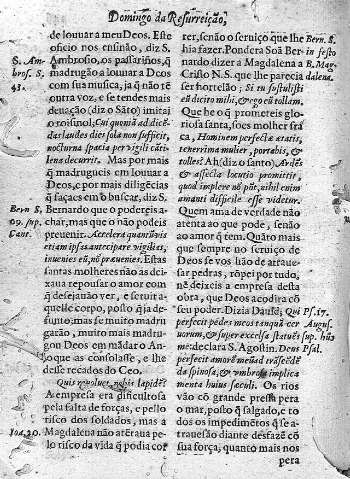 Domingo da Resurreição,
de louuar a meu Deos. Este
oficio nos ensinão, diz S.
S. Am-
Ambrosio, os passariños, q̃
bros. S.
madrugão a louuar a Deos
43.
com sua musica, ja q̃ não tẽ
outra voz, e se tendes mais
deuação (diz o Sãto) imitai
o roisinol; Cui quoniã ad dicẽ-
das laudes dies sola non sufficit,
nocturna spatia peruigili cãti-
lena decurrit. Mas por mais
q̃ madrugueis em louuar a
Deos, e por mais diligẽcias
q̃ façaes em o buscar, diz S.
Bern S,
Bernardo que o podereis a-
69. sup.
char, mas que o não podeis
Cant.
preuenir. Accedera quamuis
etiam ipsas antecipare vigilias,
inuenies eũ, nõ præuenies. Estas
santas molheres não as dei-
xaua repousar o amor com
q̃ desejauão ver, e seruir a
quelle corpo, posto q̃ ja de-
funto; mas se muito madru
garão, muito mais madru-
gon Deos em mãdar o Anjo
que as consolasse, e lhe
desse recados do Ceo.
Quis reuoluet nobis lapidẽ?
A empresa era dificultosa
pella falta de forças, e pello
risco dos soldados, mas a
Ioa. 20.
Magdalena não aterãua pe-
lo risco da vida q̃ podia cor
rer, senão o seruiço que lhe
Bern. S.
hia fazer. Pondera Sõa Ber-
in festo
nardo dizer a Magdalena a
B. Mag-
Cristo N. S. que lhe parecia
dalena.
ser hortelão; Si tu sustulisti
eũ dicito mihi, & ego eũ tollam.
Que he o q̃ prometeis glo-
riosa santa, soes molher frá
ca, Hominem perfectæ ætatis,
tenerrima mulier, portabis, &
tolles? Ah (diz o santo) Ardẽs
& affecta locutio promittit,
quod implere nõ põt, nihil enim
amanti difficile esse videtur.
Quem ama de verdade não
atenta ao que pode, senão
ao amor q̃ tem. Quãto mais
que sempre no seruiço de
Deos se vos hão de arraue-
sar pedras, rõpei por tudo,
nẽ deixeis a empresa desta
obra, que Deos acodira cõ
seu poder. Dizia Dauid, Qui
Ps. 17.
perfecit pedes meos tanquã cer
Augus.
uorum, & super excelsa statuẽs
sup. hũc
me: declara S. Agostin. Deus
Psal.
perfecit amorẽ meũ ad trãscẽdẽ
da spinosa, & vmbrosa implica
menta huius seculi. Os rios
vão cõ grande pressa pera
o mar, posto q̃ salgado, e to
dos os impedimẽtos q̃ se a-
trauesão diante desfazẽ cõ
sua força, quanto mais nos
pera